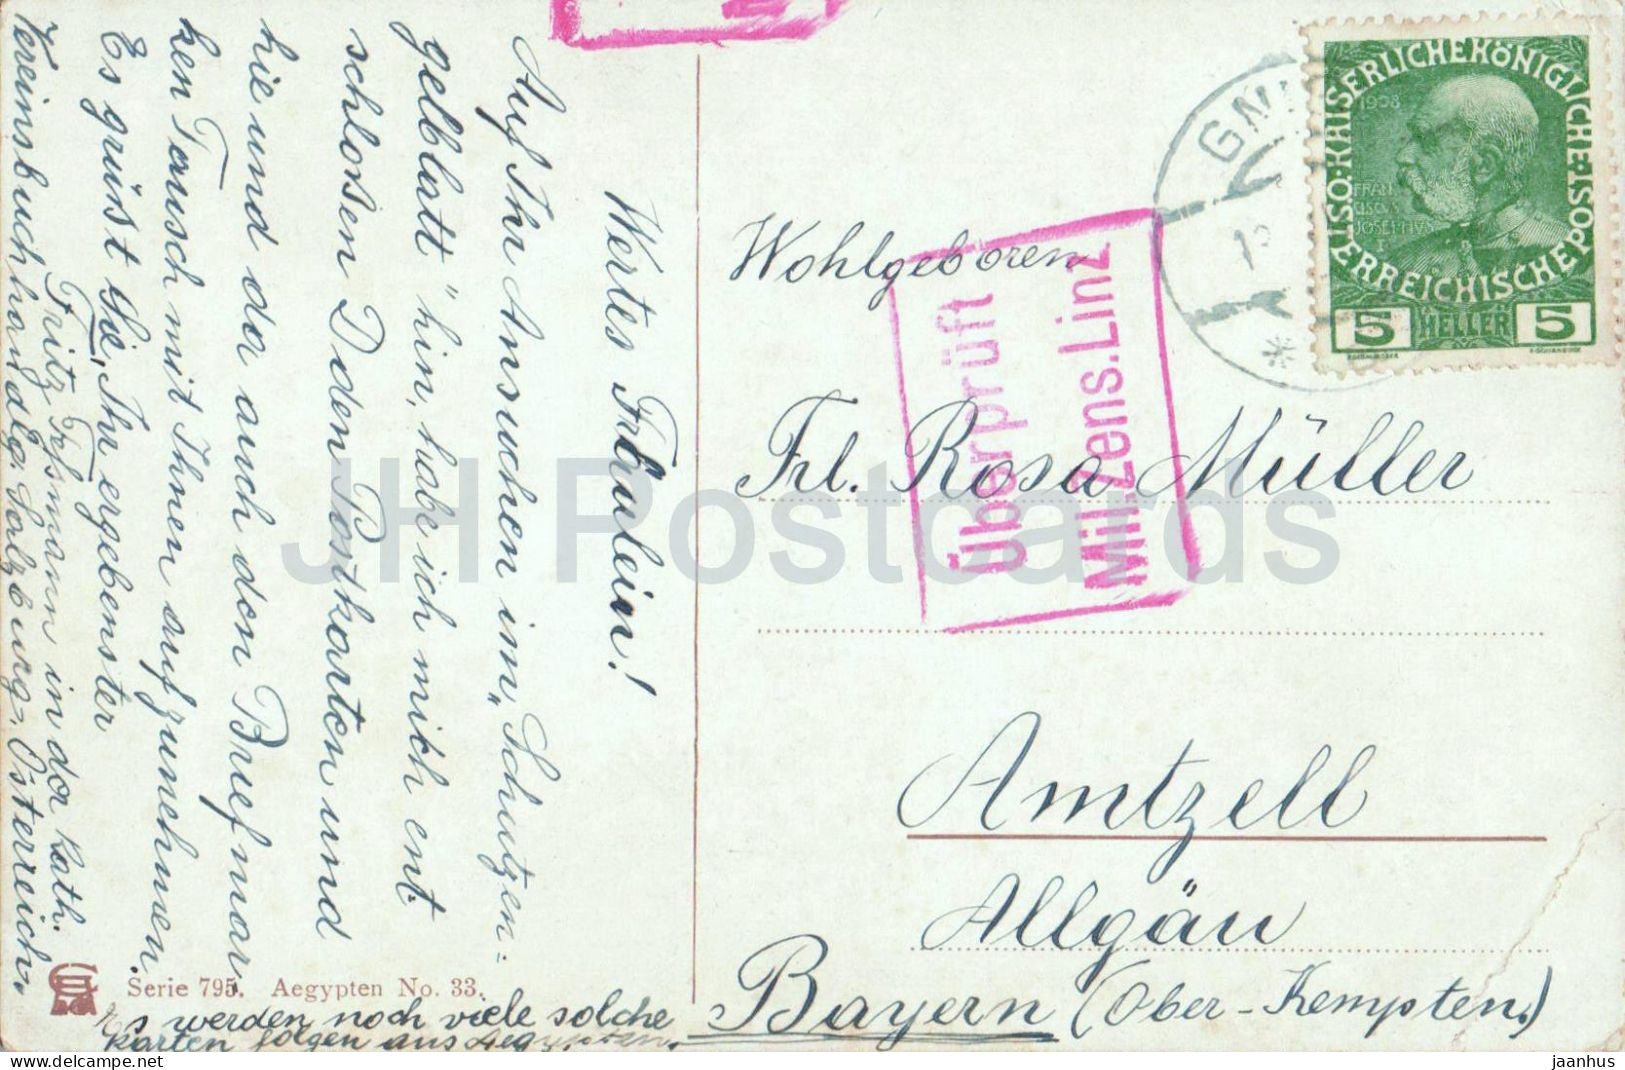 Wertes Fräulein!
Auf Ihr Ansuchen im „Schutzen-
gelblatt" hin, habe ich mich ent-
schloßen Ihnen Postkarten und
hie und da auch den Briefmar
ken Tausch mit Ihnen aufzunehmen.
Es grüßt Sie, Ihr ergebenster
Fritz Feßmann in der kath.
Vereinsbuchhandlg. Salzburg, Österreich.
Serie 795. Aegypten No. 33.
Es werden noch viele solche
Karten folgen aus Aegypten.
Wohlgeboren
Frl. Rosa Müller
Amtzell
Allgäu
Bayern (Ober-Kempten.)
Überprüft
Mil.Zens.Linz
GM
KAISERLICHE KÖNIGLICHE ÖSTERREICHISCHE POST
1908
FRAN
CISC
JOSEPHVS
I
5 HELLER 5
JH Postcards
delcampe.net
jaanhus